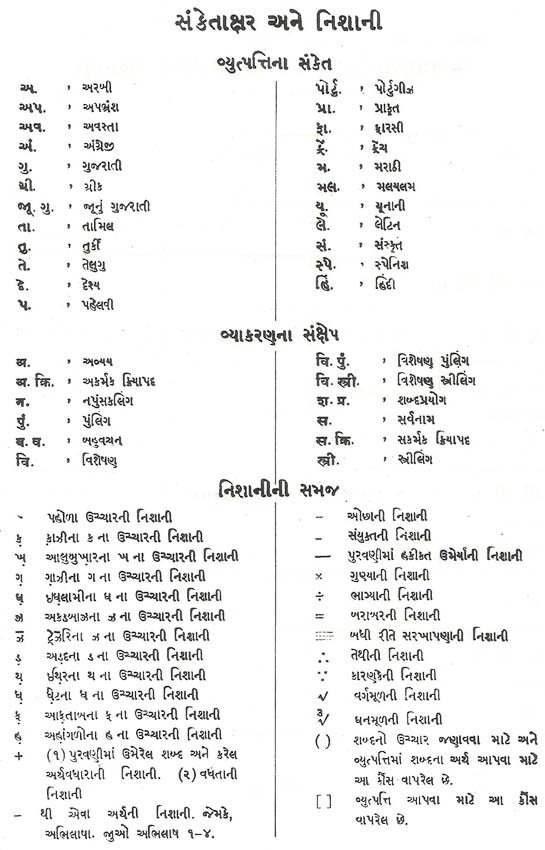 સંકેતાક્ષર અને નિશાની
વ્યુત્પત્તિના સંકેત
અ. , અરબી
અપ. , અપભ્રંશ
અવ. , અવસ્તા
અં. , અંગ્રેજી
ગુ. , ગુજરાતી
ગ્રી. , ગ્રીક
જૂ. ગુ. , જૂનું ગુજરાતી
તા. , તામિલ
તુ. , તુર્કી
તે. , તેલુગુ
દે. , દેશ્ય
પ. , પહેલવી
પોર્ટુ. , પોર્ટુગીઝ
પ્રા. , પ્રાકૃત
ફા. , ફારસી
ફ્રેં. , ફ્રેંચ
મ. , મરાઠી
મલ. , મલયાલમ
યૂ. , યૂનાની
લે. , લેટિન
સં. , સંસ્કૃત
સ્પે. , સ્પેનિશ
હિં. , હિંદી
વ્યાકરણના સંક્ષેપ
અ. , અવ્યય
અ. ક્રિ. , અકર્મક ક્રિયાપદ
ન. , નપુંસકલિંગ
પું. , પુંલિંગ
બ. વ. , બહુવચન
વિ. , વિશેષણ
વિ. પું. , વિશેષણ પુંલિંગ
વિ. સ્ત્રી. , વિશેષણ સ્ત્રીલિંગ
શ. પ્ર. , શબ્દપ્રયોગ
સ. , સર્વનામ
સ. ક્રિ. , સકર્મક ક્રિયાપદ
સ્ત્રી. , સ્ત્રીલિંગ
નિશાનીની સમજ
પહોળા ઉચ્ચારની નિશાની
ક઼ ક઼ાઝીના ક ના ઉચ્ચારની નિશાની
ખ઼ આલુબુખ઼ારના ખ ના ઉચ્ચારની નિશાની
ગ઼ ગ઼ાઝીના ગ ના ઉચ્ચારની નિશાની
ના ઉચ્ચારની નિશાની
ના ઉચ્ચારની નિશાની
ના ઉચ્ચારની નિશાની
ડ઼ અડ઼દના ડ ના ઉચ્ચારની નિશાની
થ઼ ઈથ઼રના થ ના ઉચ્ચારની નિશાની
ના ઉચ્ચારની નિશાની
ના ઉચ્ચારની નિશાની
ના ઉચ્ચારની નિશાની
+ (૧) પુરવણીમાં ઉમેરેલ શબ્દ અને કરેલ
અર્થવધારાની નિશાની. (૨) વધતાની
નિશાની
– થી એવા અર્થની નિશાની. જેમકે,
અભિલાષા. જુઓ અભિલાષ ૧–૪.
– ઓછાની નિશાની
- સંયુક્તની નિશાની
— પુરવણીમાં હકીકત ઉમેર્યાની નિશાની
× ગુણ્યાની નિશાની
÷ ભાગ્યાની નિશાની
= બરાબરની નિશાની
બધી રીતે સરખાપણાની નિશાની
∴ તેથીની નિશાની
∵ કારણકેની નિશાની
√ વર્ગમૂળની નિશાની
∛ ઘનમૂળની નિશાની
( ) શબ્દનો ઉચ્ચાર જણાવવા માટે અને
વ્યુત્પત્તિમાં શબ્દના અર્થ આપવા માટે
આ કૌંસ વાપરેલ છે.
[ ] વ્યુત્પત્તિ આપવા માટે આ કૌંસ
વાપરેલ છે.